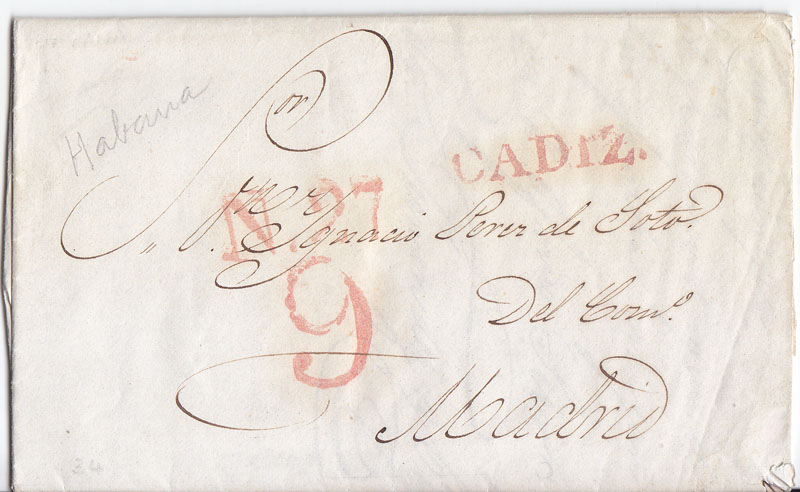 Habana
Sor
CADIZ.
Nº 27
Ignacio Perez de Soto.
9
Del Como.
Madrid
24